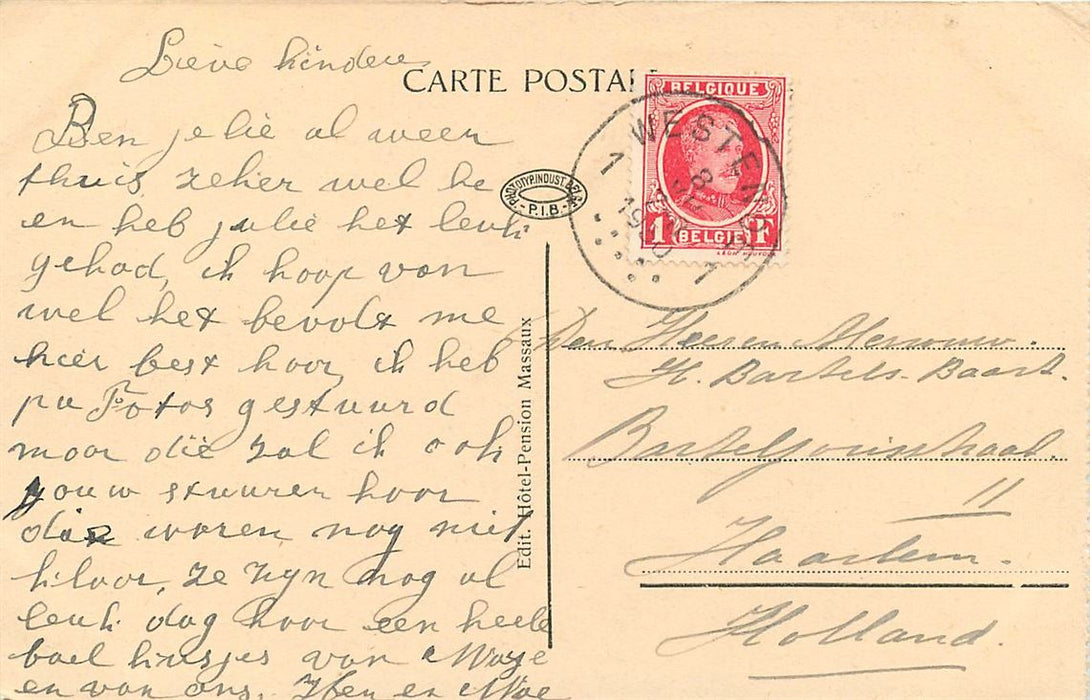 Lieve kinderen
Ben jelie al weer
thuis zeker wel he
en heb julie het leuk
gehad, ik hoop van
wel het bevolt me
hier best hoor, ik heb
pu Fotos gestuurd
maar die zal ik ook
jouw stuuren hoor
die waren nog niet
klaar, ze zijn nog al
leuk dag hoor een heele
boel kusjes van
en van ons.
CARTE POSTAL
PHOTOTYP. INDUST. BELGE
- P.I.B. -
BELGIQUE
1 BELGIË F
LÉON HOUYOUX
WESTEND
1 1
8
19
Edit. Hôtel-Pension Massaux
Den Heer en Mevrouw.
H. Bartels-Baart.
Barteljorisstraat.
11
Haarlem.
Holland.